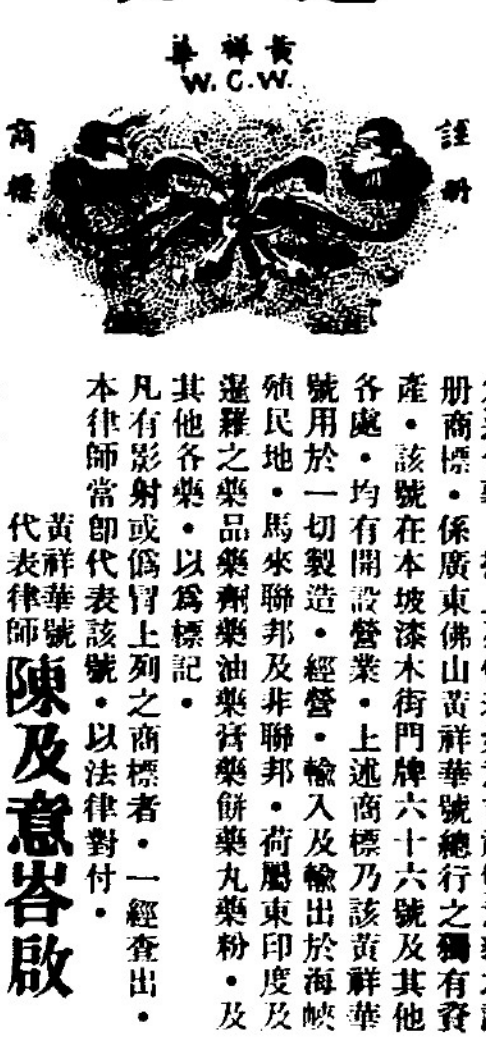 黃祥華
W.C.W.
註冊
商標
册商標・係廣東佛山黃祥華號總行之獨有資
產・該號在本坡漆木街門牌六十六號及其他
各處・均有開設營業・上述商標乃該黃祥華
號用於一切製造・經營・輸入及輸出於海峽
殖民地・馬來聯邦及非聯邦・荷屬東印度及
暹羅之藥品藥劑藥油藥膏藥餅藥丸藥粉・及
其他各藥・以爲標記・
凡有影射或僞冒上列之商標者・一經查出・
本律師當卽代表該號・以法律對付・
黃祥華號
代表律師
陳及意咨啟